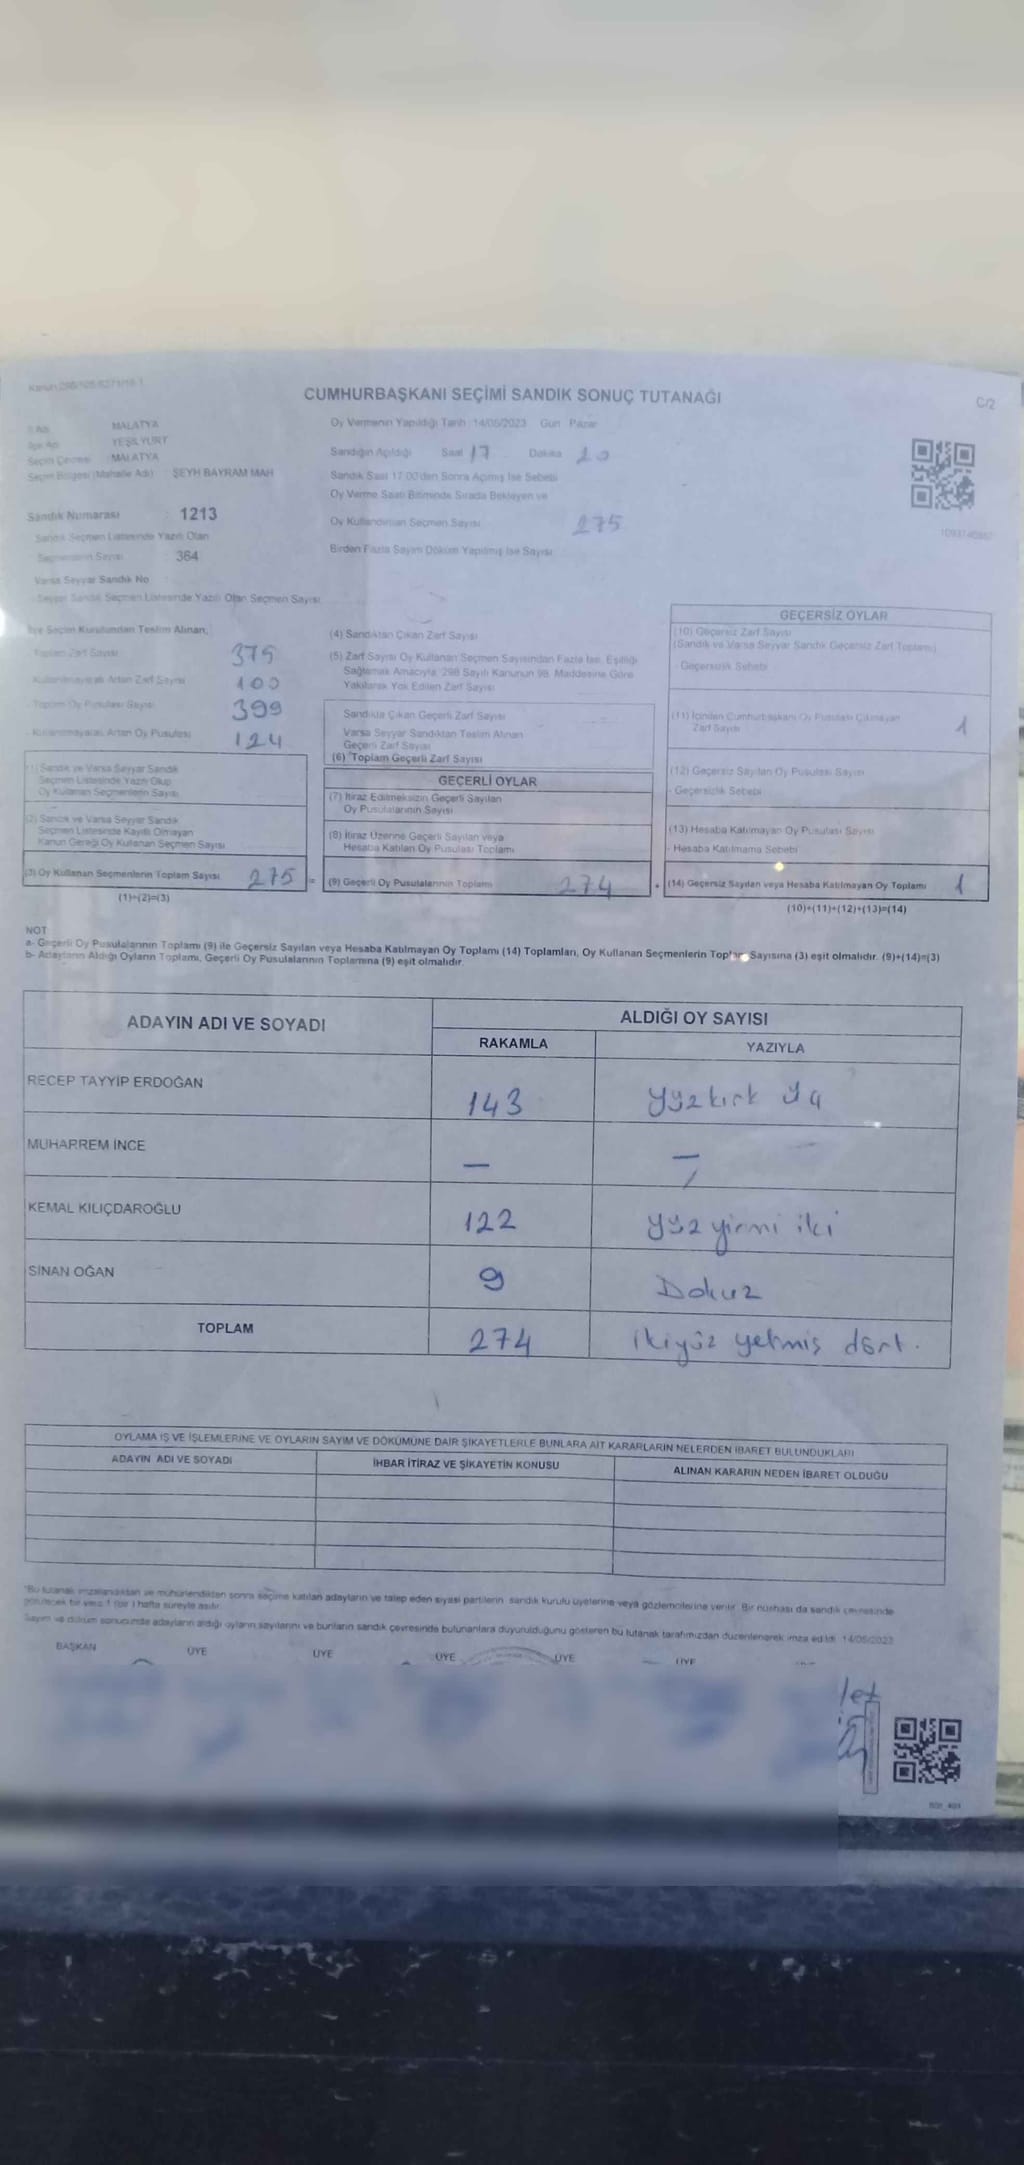 CUMHURBAŞKANI SEÇİMİ SANDIK SONUÇ TUTANAĞI
C/2
MALATYA
YEŞİLYURT
MALATYA
Seçim Bölgesi (Mahalle Adı) : ŞEYH BAYRAM MAH
Sandık Numarası : 1213
Sandık Seçmen Listesinde Yazılı Olan
Seçmenlerin Sayısı : 364
Varsa Seyyar Sandık No
Seyyar Sandık Seçmen Listesinde Yazılı Olan Seçmen Sayısı
Oy Vermenin Yapıldığı Tarih : 14/05/2023 Gün : Pazar
Sandığın Açıldığı Saat 17 Dakika 10
Sandık Saat 17.00'den Sonra Açımış İse Sebebi
Oy Verme Saati Bitiminde Sırada Bekleyen ve
Oy Kullandırılan Seçmen Sayısı 275
Birden Fazla Sayım Döküm Yapılmış İse Sayısı
İlçe Seçim Kurulundan Teslim Alınan;
Toplam Zarf Sayısı 375
Kullanılmayarak Artan Zarf Sayısı 100
Toplam Oy Pusulası Sayısı 399
Kullanılmayarak Artan Oy Pusulası 124
(1) Sandık ve Varsa Seyyar Sandık
Seçmen Listesinde Yazılı Olup
Oy Kullanan Seçmenlerin Sayısı
(2) Sandık ve Varsa Seyyar Sandık
Seçmen Listesinde Kayıtlı Olmayan
Kanun Gereği Oy Kullanan Seçmen Sayısı
(3) Oy Kullanan Seçmenlerin Toplam Sayısı 275
(1)+(2)=(3)
(4) Sandıktan Çıkan Zarf Sayısı
(5) Zarf Sayısı Oy Kullanan Seçmen Sayısından Fazla İse, Eşitliği
Sağlamak Amacıyla, 298 Sayılı Kanunun 98. Maddesine Göre
Yakılarak Yok Edilen Zarf Sayısı
Sandıkta Çıkan Geçerli Zarf Sayısı
Varsa Seyyar Sandıktan Teslim Alınan
Geçerli Zarf Sayısı
(6) Toplam Geçerli Zarf Sayısı
GEÇERLİ OYLAR
(7) İtiraz Edilmeksizin Geçerli Sayılan
Oy Pusulalarının Sayısı
(8) İtiraz Üzerine Geçerli Sayılan veya
Hesaba Katılan Oy Pusulası Toplamı
= (9) Geçerli Oy Pusulalarının Toplamı 274
GEÇERSİZ OYLAR
(10) Geçersiz Zarf Sayısı
(Sandık ve Varsa Seyyar Sandık Geçersiz Zarf Toplamı)
- Geçersizlik Sebebi
(11) İçinden Cumhurbaşkanı Oy Pusulası Çıkmayan
Zarf Sayısı 1
(12) Geçersiz Sayılan Oy Pusulası Sayısı
- Geçersizlik Sebebi
(13) Hesaba Katılmayan Oy Pusulası Sayısı
- Hesaba Katılmama Sebebi
+ (14) Geçersiz Sayılan veya Hesaba Katılmayan Oy Toplamı 1
(10)+(11)+(12)+(13)=(14)
NOT
a- Geçerli Oy Pusulalarının Toplamı (9) ile Geçersiz Sayılan veya Hesaba Katılmayan Oy Toplamı (14) Toplamları, Oy Kullanan Seçmenlerin Toplam Sayısına (3) eşit olmalıdır. (9)+(14)=(3)
b- Adayların Aldığı Oyların Toplamı, Geçerli Oy Pusulalarının Toplamına (9) eşit olmalıdır.
ADAYIN ADI VE SOYADI
ALDIĞI OY SAYISI
RAKAMLA YAZIYLA
RECEP TAYYİP ERDOĞAN 143 yüzkırk üç
MUHARREM İNCE — —
KEMAL KILIÇDAROĞLU 122 yüz yirmi iki
SİNAN OĞAN 9 Dokuz
TOPLAM 274 ikiyüz yetmiş dört.
OYLAMA İŞ VE İŞLEMLERİNE VE OYLARIN SAYIM VE DÖKÜMÜNE DAİR ŞİKAYETLERLE BUNLARA AİT KARARLARIN NELERDEN İBARET BULUNDUKLARI
ADAYIN ADI VE SOYADI
İHBAR İTİRAZ VE ŞİKAYETİN KONUSU
ALINAN KARARIN NEDEN İBARET OLDUĞU
*Bu tutanak imzalandıktan ve mühürlendikten sonra seçime katılan adayların ve talep eden siyasi partilerin sandık kurulu üyelerine veya gözlemcilerine verilir. Bir nüshası da sandık çevresinde
görülecek bir yere 1 (bir) hafta süreyle asılır.
Sayım ve döküm sonucunda adayların aldığı oyların sayılarını ve bunların sandık çevresinde bulunanlara duyurulduğunu gösteren bu tutanak tarafımızdan düzenlenerek imza edildi. 14/05/2023
BAŞKAN ÜYE ÜYE ÜYE ÜYE ÜYE